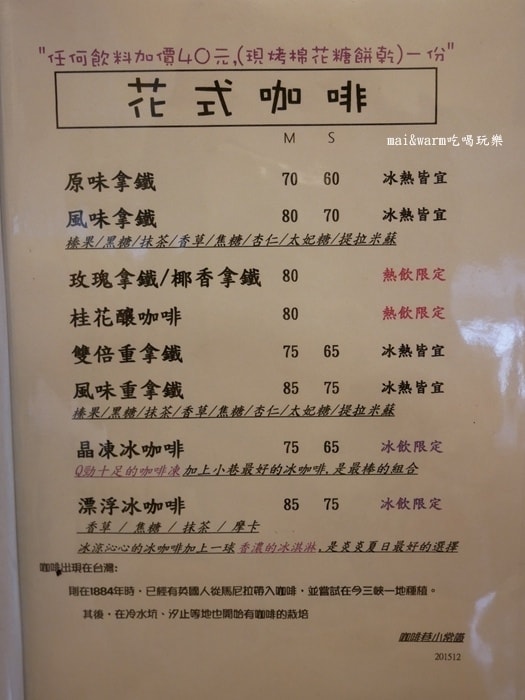 "任何飲料加價40元,(現烤棉花糖餅乾)一份"
花式咖啡
M S
mai&warm吃喝玩樂
原味拿鐵 70 60 冰熱皆宜
風味拿鐵 80 70 冰熱皆宜
榛果/黑糖/抹茶/香草/焦糖/杏仁/太妃糖/提拉米蘇
玫瑰拿鐵/椰香拿鐵 80 熱飲限定
桂花釀咖啡 80 熱飲限定
雙倍重拿鐵 75 65 冰熱皆宜
風味重拿鐵 85 75 冰熱皆宜
榛果/黑糖/抹茶/香草/焦糖/杏仁/太妃糖/提拉米蘇
晶凍冰咖啡 75 65 冰飲限定
Q勁十足的咖啡凍加上小巷最好的冰咖啡,是最棒的組合
漂浮冰咖啡 85 75 冰飲限定
香草 / 焦糖 / 抹茶 / 摩卡
冰涼沁心的冰咖啡加上一球香濃的冰淇淋,是炎炎夏日最好的選擇
咖啡出現在台灣:
則在1884年時，已經有英國人從馬尼拉帶入咖啡，並嘗試在今三峽一地種植。
其後，在冷水坑、汐止等地也開始有咖啡的栽培
咖啡巷小常識
201512